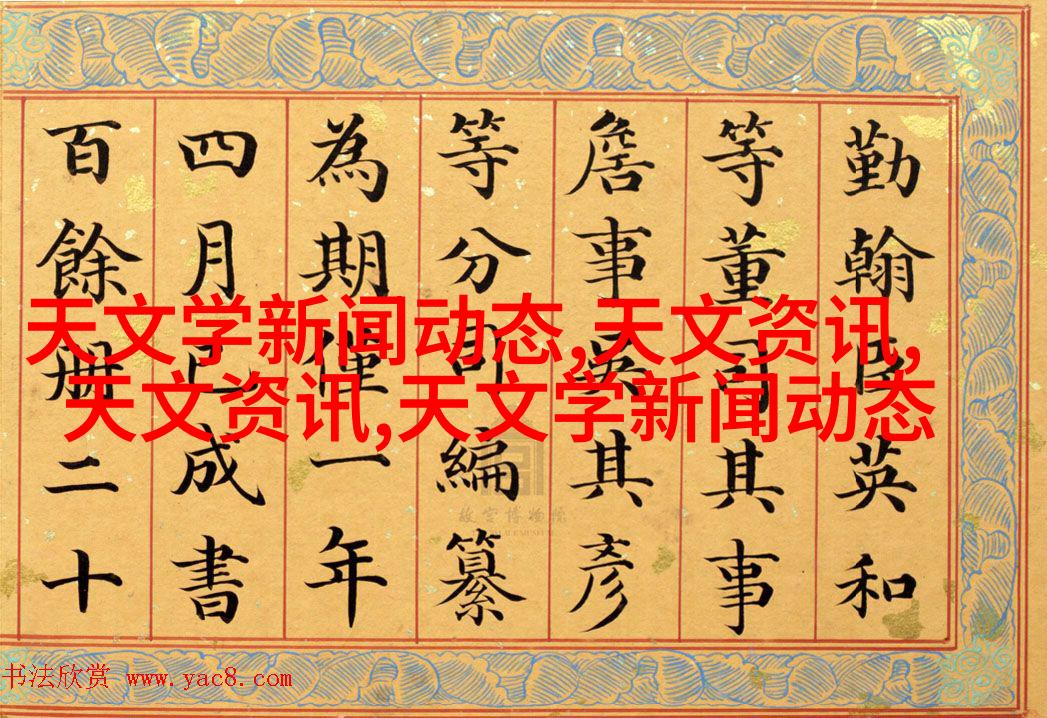 勤翰臣英和
等董司其事
詹事吳其彥
等分司編纂
為期僅一年
四月已成書
百餘冊二十
天文学新闻动态,天文资讯,
天文资讯,天文学新闻动态
故宫博物院
书法欣赏 www.yac8.com